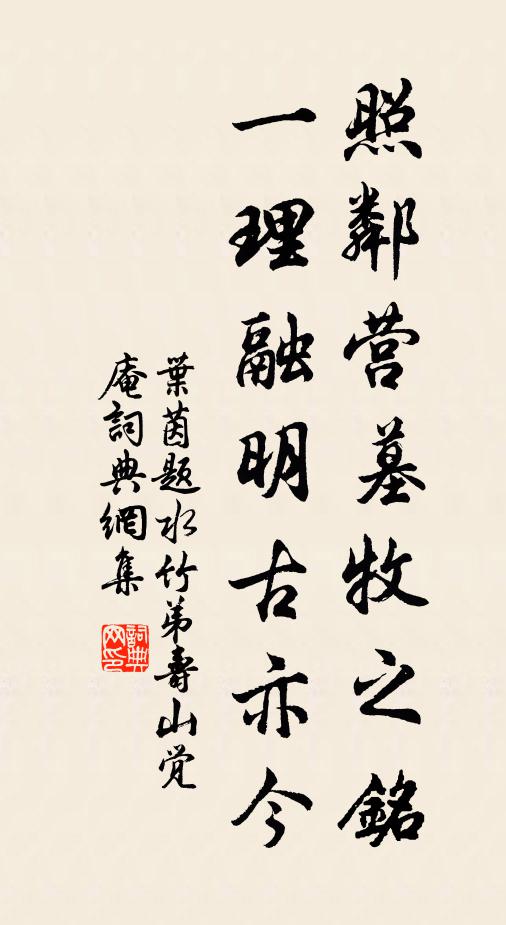 照鄰营墓牧之銘
一理融明古亦今
葉茵题水竹弟壽山觉
庵詞典網集
詞典網印